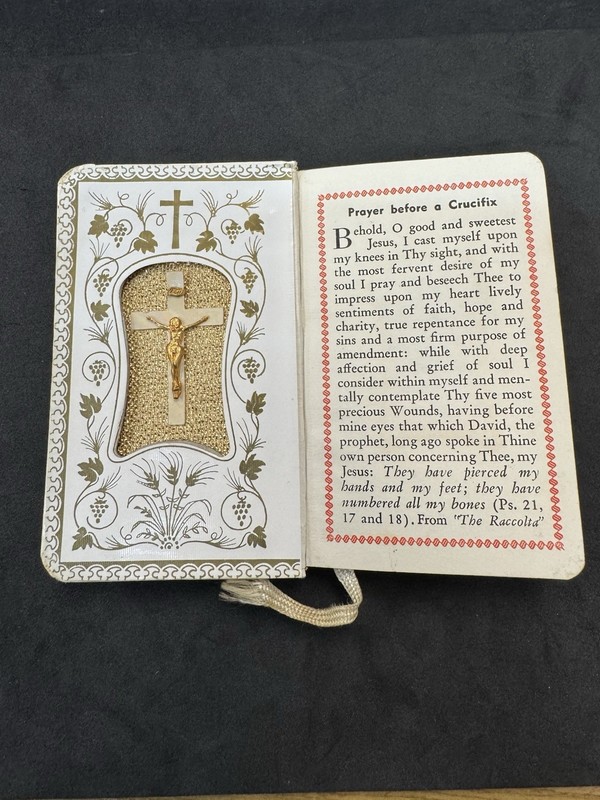 Prayer before a Crucifix
Behold, O good and sweetest
Jesus, I cast myself upon
my knees in Thy sight, and with
the most fervent desire of my
soul I pray and beseech Thee to
impress upon my heart lively
sentiments of faith, hope and
charity, true repentance for my
sins and a most firm purpose of
amendment: while with deep
affection and grief of soul I
consider within myself and men-
tally contemplate Thy five most
precious Wounds, having before
mine eyes that which David, the
prophet, long ago spoke in Thine
own person concerning Thee, my
Jesus: They have pierced my
hands and my feet; they have
numbered all my bones (Ps. 21,
17 and 18). From "The Raccolta"